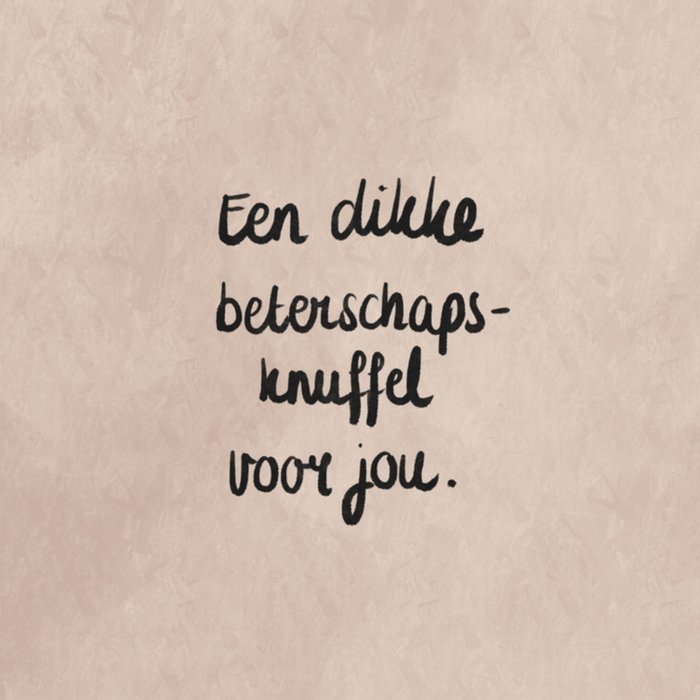 Een dikke
beterschaps-
knuffel
voor jou.